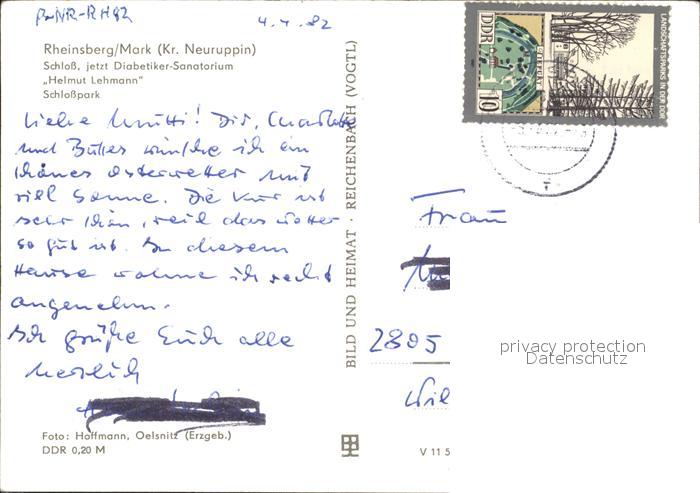 4.4.82
Rheinsberg/Mark (Kr. Neuruppin)
Schloß, jetzt Diabetiker-Sanatorium
„Helmut Lehmann“
Schloßpark
Liebe Mutti! Dir, Charlotte
und wünsche ich ein
schönes Osterwetter mit
viel Sonne. Die Kur ist
sehr schön, weil das Wetter
so gut ist. In diesem
Hause wohne ich recht
angenehm.
Ich grüße Euch alle
herzlich
Foto: Hoffmann, Oelsnitz (Erzgeb.)
DDR 0,20 M
BILD UND HEIMAT · REICHENBACH (VOGTL)
LANDSCHAFTSPARKS IN DER DDR
DDR
10
Frau
2805
V 11 5
privacy protection
Datenschutz